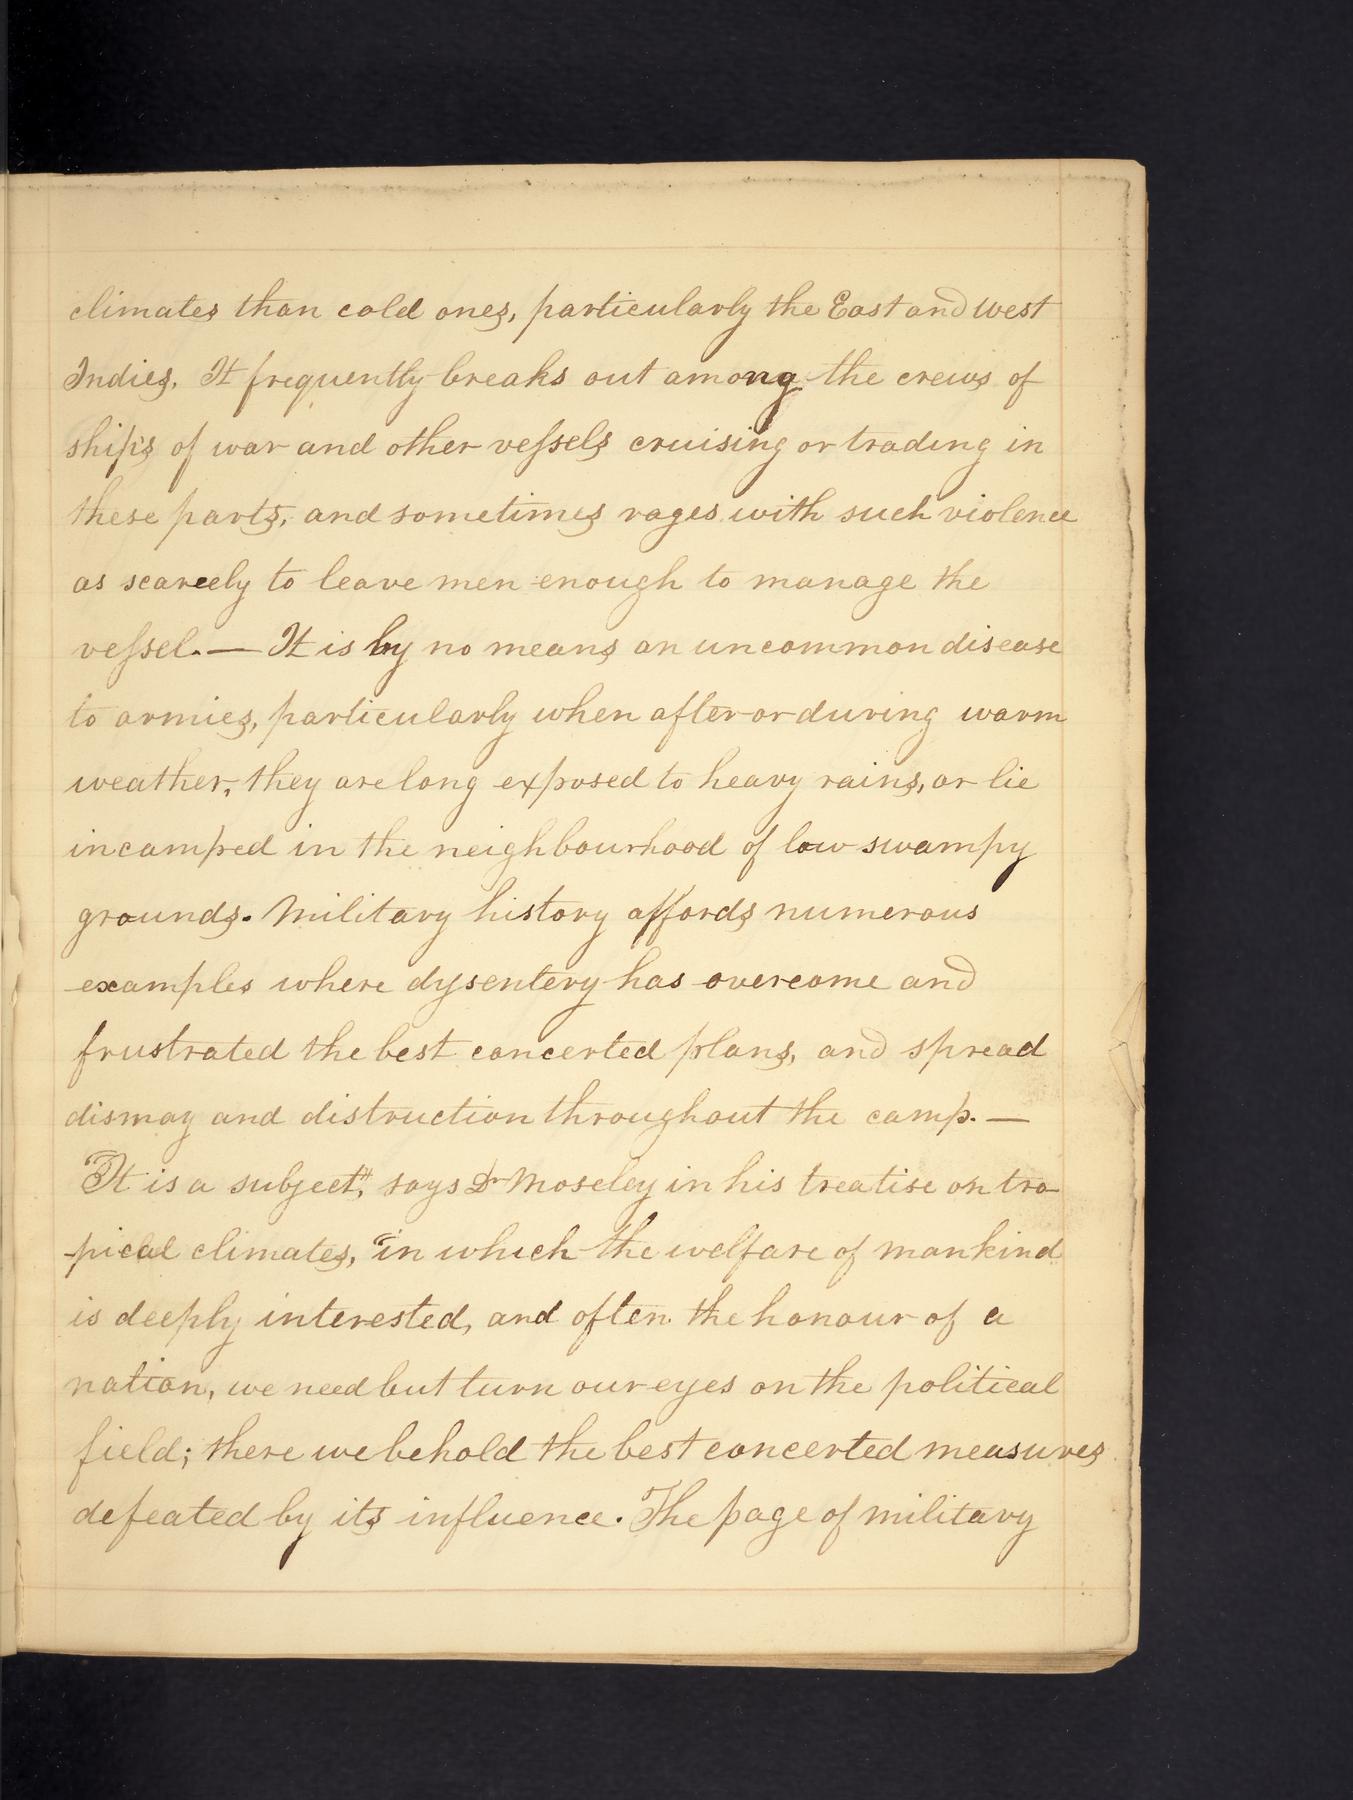 climates than cold ones, particularly the East and West
Indies. It frequently breaks out among the crews of
ships of war and other veſsels cruising or trading in
these parts, and sometimes rages with such violence
as scarcely to leave men enough to manage the
veſsel. — It is by no means an uncommon disease
to armies, particularly when after or during warm
weather, they are long exposed to heavy rains, or lie
incamped in the neighbourhood of low swampy
grounds. Military history affords numerous
examples where dysentery has overcome and
frustrated the best concerted plans, and spread
dismay and distruction throughout the camp. —
"It is a subject", says Dr Moseley in his treatise on tro-
-pical climates, "in which the welfare of mankind
is deeply interested, and often the honour of a
nation, we need but turn our eyes on the political
field; there we behold the best concerted measures
defeated by its influence. The page of military